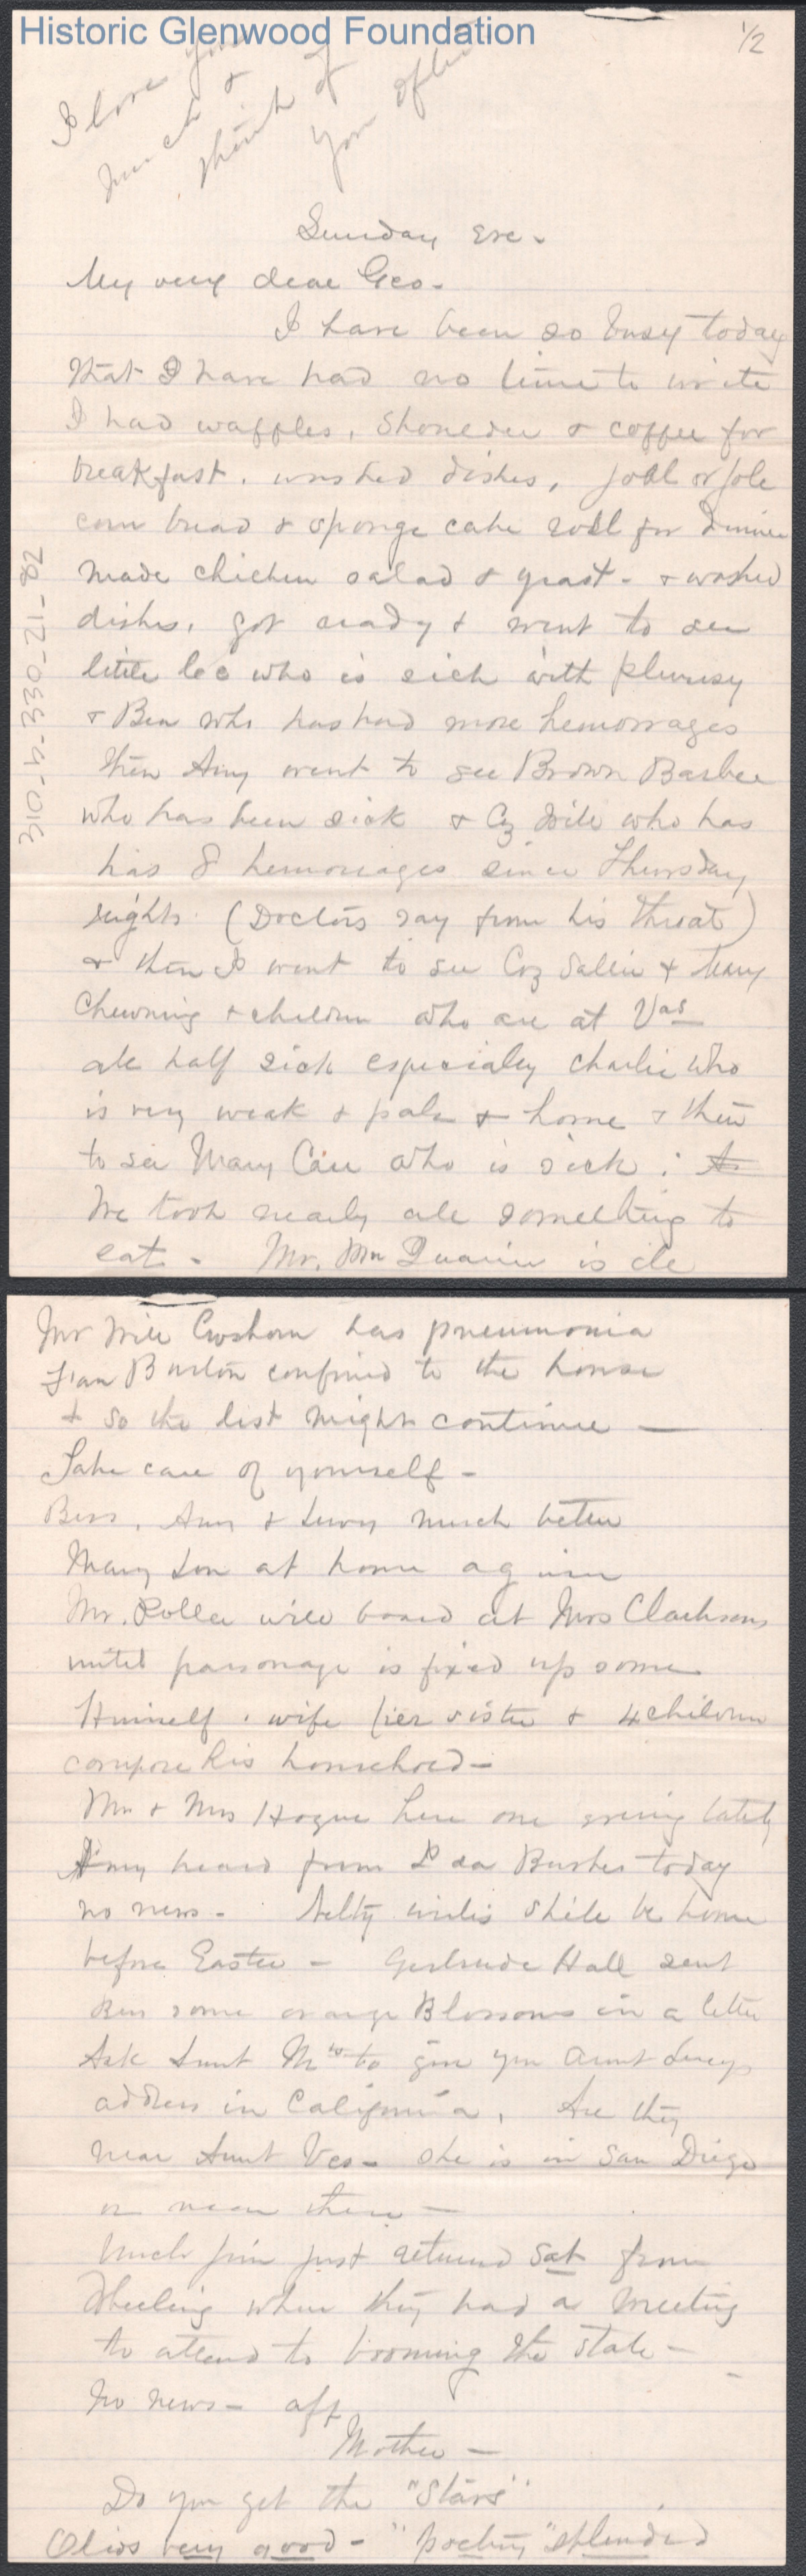 Historic Glenwood Foundation
1/2
I love you
much &
think of
you often
Sunday Eve -
My very dear Geo -
I have been so busy today
that I have had no time to write
I had waffles, & coffee for
breakfast, washed dishes, or jole
corn bread & sponge cake roll for dinner
made chicken salad & yeast - & washed
dishes, got ready & went to see
little Lee who is sick with plurisy
& Ben who has had more hemorrages
then Amy went to see Brown Barbee
who has been sick & Coz Will who has
has 8 hemorrages since Thursday
night (Doctors say from his throat)
& then I went to see Coz Sallie & Mary
Chewning & children who are at Vas
all half sick especialy Charlie who
is very weak & pale & home & then
to see Mary Carr who is sick :
We took nearly all something to
eat - Mr. is ill
310-4-330-21-82
Mr Will Goshorn has pneumonia
Burlon confined to the house
& so the list might continue —
Take care of yourself -
Bess, Amy & Lewis much better
Mary Lou at home again
Mr. Roller will board at Mrs Clarksons
until parsonage is fixed up some
Himself, wife her sister & 4 children
compose his household -
Mr & Mrs Hogue here one evening lately
Amy heard from Ida Burke today
no news - writes she'll be home
before Easter - Gertrude Hall sent
Bess some orange Blossoms in a letter
Ask Aunt to give you Aunt Lucys
address in California, Are they
near Aunt Ves - she is in San Diego
or near there —
Uncle Jim just returned Sat from
Wheeling where they had a meeting
to attend to booming the state -
No news - aff
Mother -
Do you get the "Stars"
Olios very good - "poetry" splendid